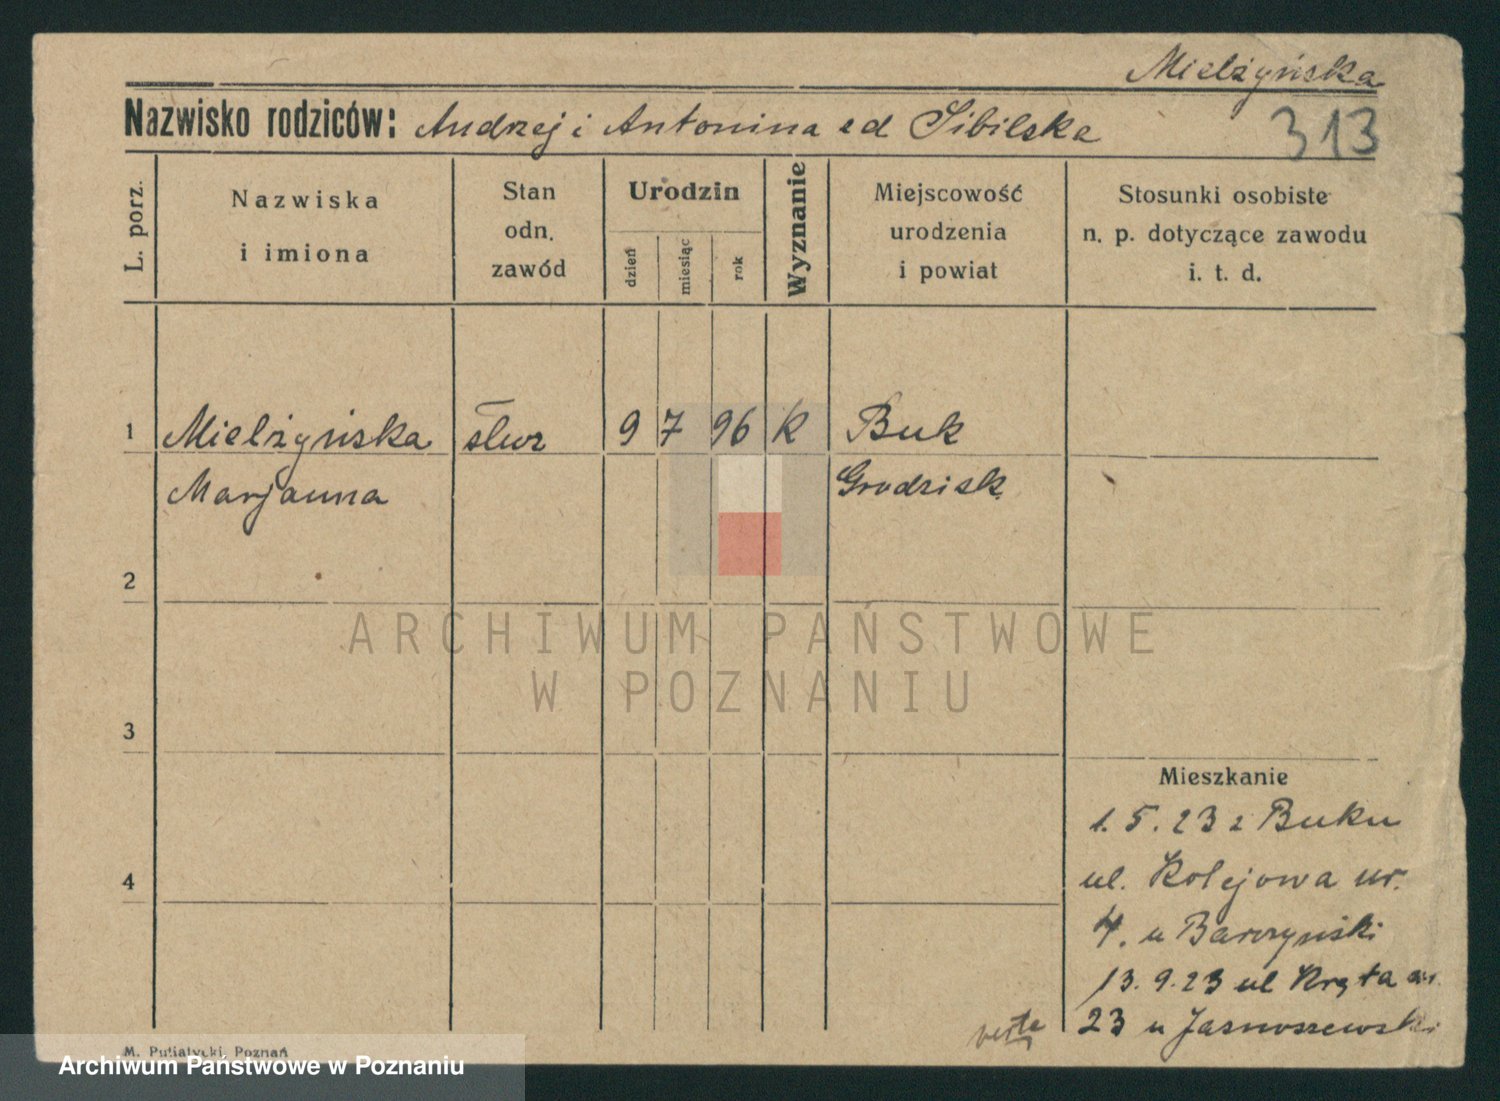 Mielżyńska
Nazwisko rodziców: Andrzej i Antonina ed Sibilska
313
L. porz.
Nazwiska
i imiona
Stan
odn.
zawód
Urodzin
dzień
miesiąc
rok
Wyznanie
Miejscowość
urodzenia
i powiat
Stosunki osobiste
n. p. dotyczące zawodu
i. t. d.
1 Mielżyńska służ 9 7 96 K Buk
Marjanna Grodzisk
2
ARCHIWUM PAŃSTWOWE
W POZNANIU
3
Mieszkanie
1. 5. 23 z Buku
4
ul. Kolejowa nr.
4. u Barczyński
13. 9. 23 ul Kręta nr.
23 u Jasnoszewski
verte
M. Putiatycki, Poznań
Archiwum Państwowe w Poznaniu